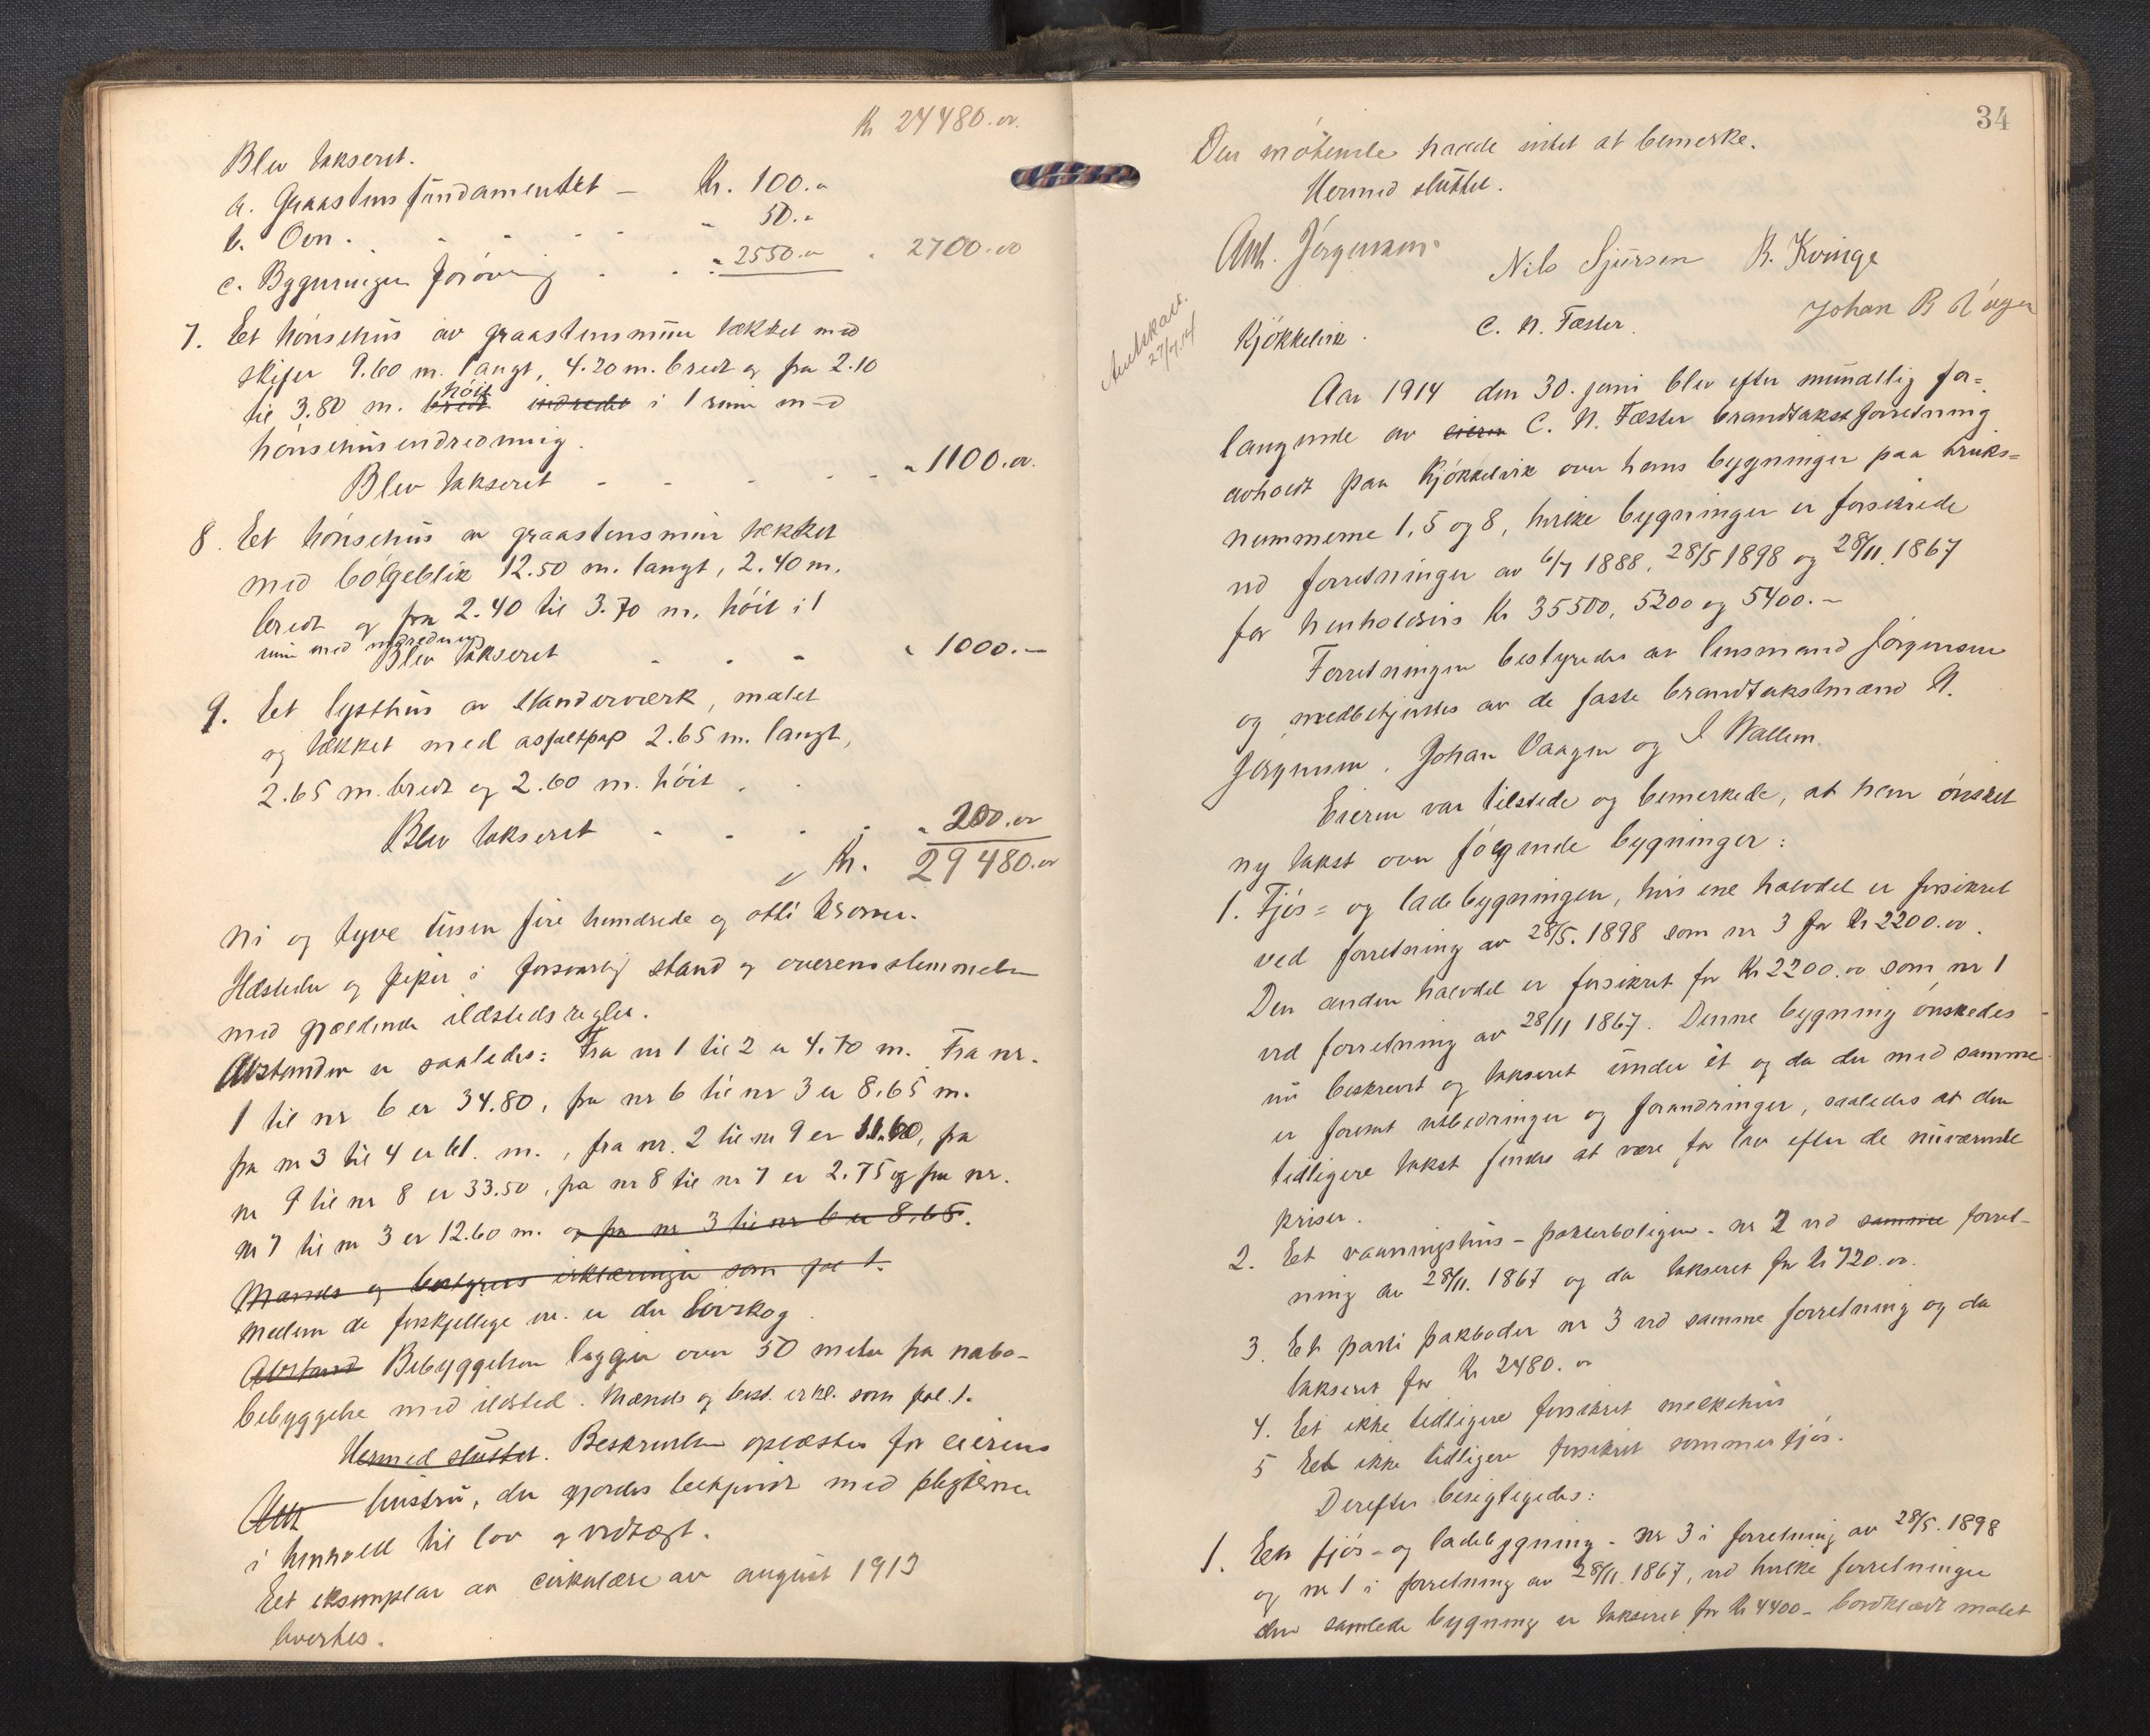 Kr 24480.00
Blev takseret.
a. Graastensfundamentet - Kr. 100.00
b. Ovn . - - - - " 50.00
c. Bygningen forøvrig - - " 2550.00 " 2700.00
7. Et hönsehus av graastensmur tækket med
skifer 9.60 m. langt, 4.20 m. bredt og fra 2.10
til 3.80 m. bredt höit indredet i 1 rum med
hönsehusindredning.
Blev takseret - - - - - " 1100.00.
8. Et hönsehus av graastensmur tækket
med bölgeblik 12.50 m. langt, 2.40 m.
bredt og fra 2.40 til 3.70 m. höit i 1
rum med indredning
Blev takseret - - - " 1000.-
9. Et lysthus av standerværk, malet
og tækket med asfaltpap 2.65 m. langt,
2.65 m. bredt og 2.60 m. höit . .
Blev takseret - - - - " 200.00
Kr. 29480.00
Ni og tyve tusen fire hundrede og otti kroner.
Ildsteder og piper i forsvarlig stand og overensstemmelse
med gjældende ildstedsregler.
Avstanden er saaledes: Fra nr 1 til 2 er 4.70 m. Fra nr.
1 til nr 6 er 34.80, fra nr 6 til nr 3 er 8.65 m.
fra nr 3 til 4 er 61. m., fra nr. 2 til nr 9 er 11.60, fra
nr 9 til nr 8 er 33.50, fra nr 8 til nr 7 er 2.75 og fra nr.
nr 7 til nr 3 er 12.60 m. og fra nr 3 til nr 6 er 8.65.
Mænds og bestyrers erklæringer som fol 1.
Mellem de forskjellige nr. er der lövskog.
Avstand Bebyggelsen ligger over 50 meter fra nabo-
bebyggelse med ildsted. Mænds og best. erkl. som fol. 1.
Hermed sluttet. Beskrivelsen oplæstes for eierens
hustru, der gjordes bekjendt med pligterne
i henhold til lov og vedtægt.
Et eksemplar av cirkulære av august 1913
levertes.
34
Den mötende hadde intet at bemerke.
Hermed sluttet.
Ant. Jörgensen Nils Sjursen R. Kvinge
C. N. Fæster. Johan B Vaagen
Kjökkelvik.
Avskrevet 27/7.14
Aar 1914 den 30. juni blev efter mundtlig for=
langende av eieren C. N. Fæster brandtakstforretning
avholdt paa Kjökkelvik over hans bygninger paa bruks=
nummerne 1, 5 og 8, hvilke bygninger er forsikrede
ved forretninger av 6/7 1888, 28/5 1898 og 28/11. 1867
for henholdsvis Kr 35500, 5200 og 5400.-
Forretningen bestyredes av lensmand Jörgensen
og medbetjentes av de faste brandtakstmænd N.
Jörgensen, Johan Vaagen og J Wallem.
Eieren var tilstede og bemerkede, at han önsket
ny takst over fölgende bygninger:
1. Fjös= og ladebygningen, hvis ene halvdel er forsikret
ved forretning av 28/5. 1898 som nr 3 for Kr 2200.00.
Den anden halvdel er forsikret for Kr 2200.00 som nr 1
ved forretning av 28/11 1867. Denne bygning önskedes
nu beskrevet og takseret under ét og da der med samme
er foretat utbedringer og forandringer, saaledes at den
tidligere takst findes at være for lav efter de nuværende
priser.
2. Et vaaningshus - forkerboligen - nr 2 ved samme forret-
ning av 28/11. 1867 og da takseret for Kr 720.00.
3. Et parti pakboder nr 3 ved samme forretning og da
takseret for Kr 2480.00
4. Et ikke tidligere forsikret melkehus
5 Et ikke tidligere forsikret sommerfjös.
Derefter besigtigedes:
1. En fjös- og ladebygning - nr 3 i forretning av 28/5. 1898
og nr 1 i forretning av 28/11 1867, ved hvilke forretninger
den samlede bygning er takseret for Kr 4400 - bordklædt malet